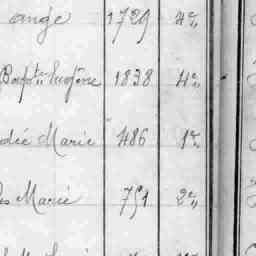 ange 1729 4e
Bapte Eugène 1838 4e
dée Marie 486 1e
es Marie 751 2e